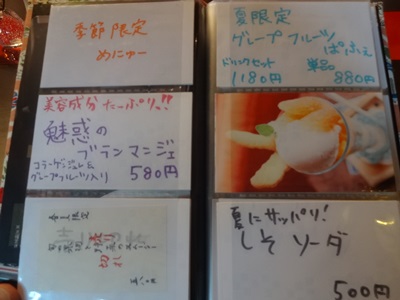 季節限定
めにゅー
美容成分たーぷり!!
魅惑の
ブランマンジェ
コラーゲンジュレ&
グレープフルーツ入り 580円
売り
切れ
夏限定
グレープフルーツ
ぱふぇ
ドリンクセット 単品
1180円 880円
夏にサッパリ!
しそソーダ
500円